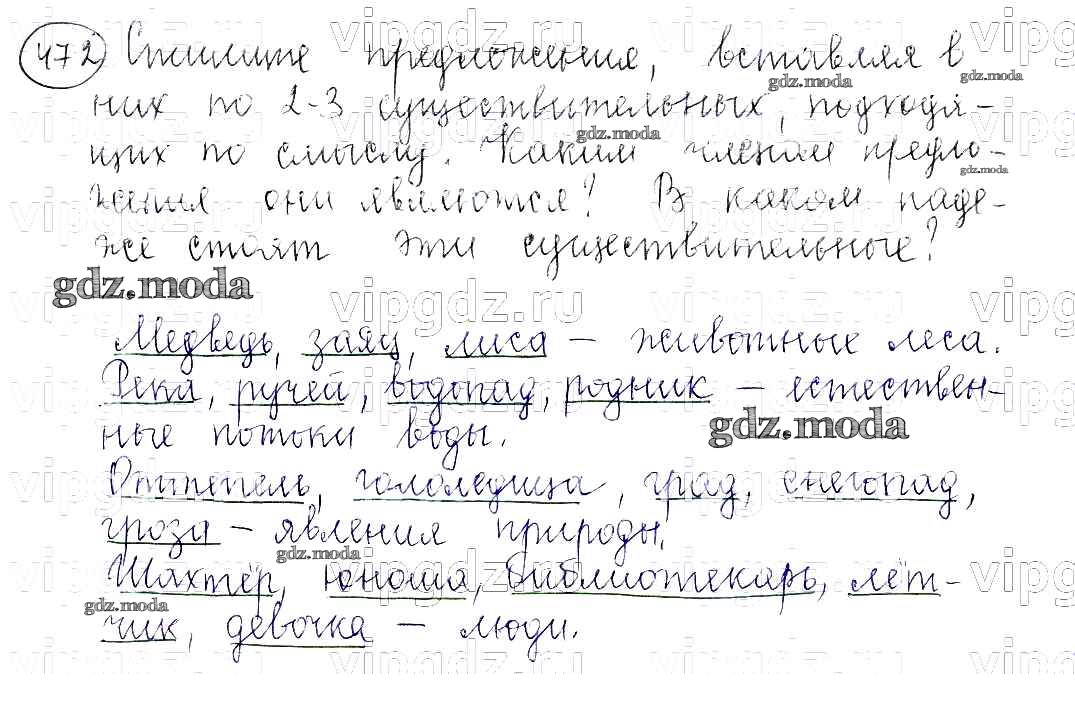 472 Спишите предложения, вставляя в
них по 2-3 существительных, подходя-
щих по смыслу. Каким членом предло-
жения они являются? В каком паде-
же стоят эти существительные?
gdz.moda
Медведь, заяц, лиса – животные леса.
Река, ручей, водопад, родник – естествен-
ные потоки воды.
gdz.moda
Оттепель, гололедица, град, снегопад,
гроза – явления природы.
gdz.moda
Шахтёр, юноша, библиотекарь, лёт-
gdz.moda
чик, девочка – люди.